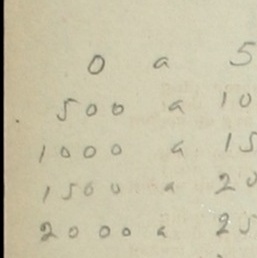 0 a 5
500 a 10
1000 a 15
1500 a 20
2000 a 25